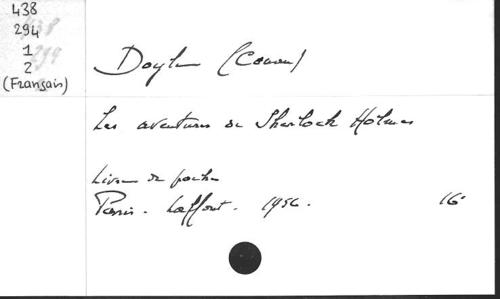 438
294
1
2
(Français)
Doyle (Conan)
Les aventures de Sherlock Holmes
Livre de poche
Paris. Laffont. 1956. 16°